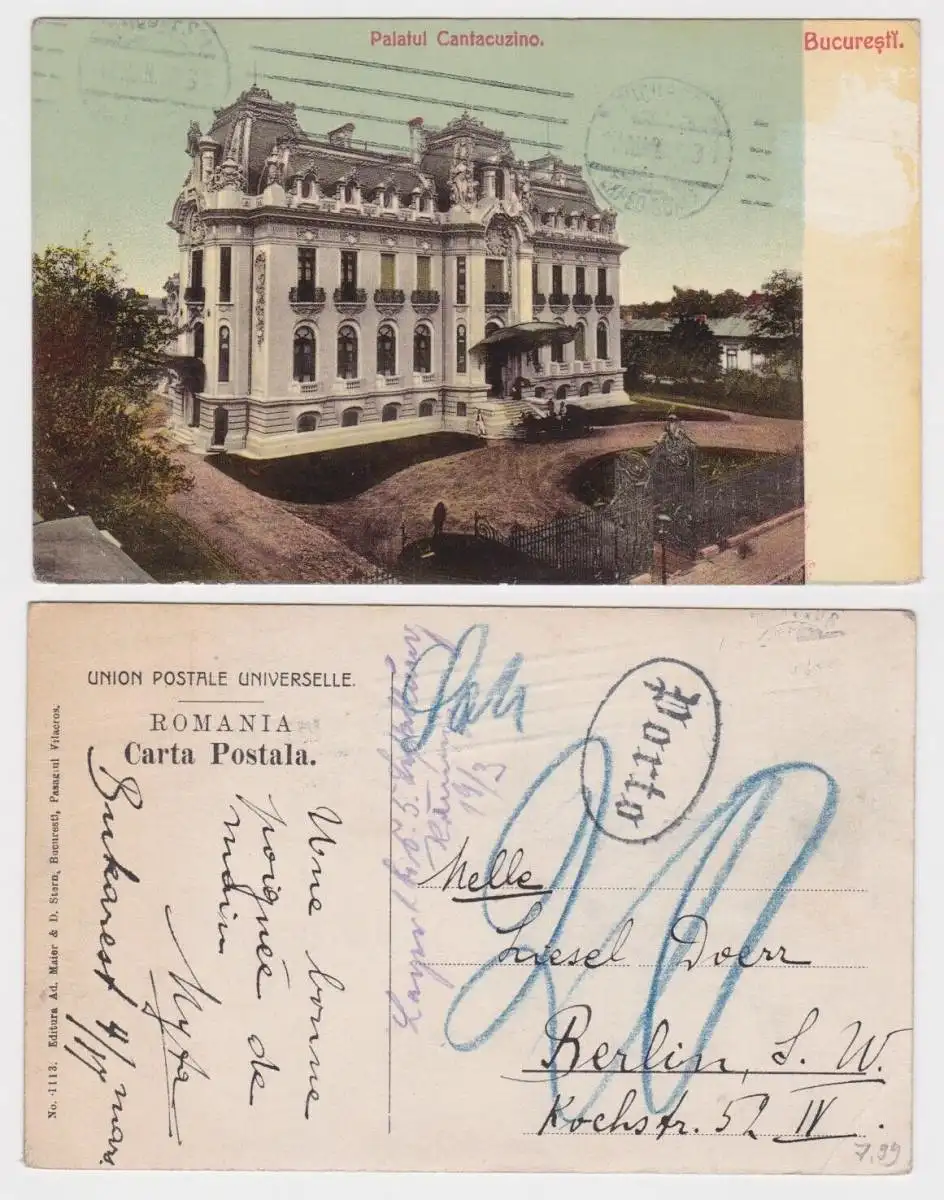 Palatul Cantacuzino.
Bucureştĭ.
UNION POSTALE UNIVERSELLE.
ROMANIA
Carta Postala.
No. 1113. Editura Ad. Maier & D. Stern, Bucuresti, Pasagiul Vilacros.
Bukarest 4/ mars.
Une bonne
poignée de
main
Porto
19/3
20
Melle
Liesel Doerr
Berlin, S. W.
Kochstr. 52 IV.
7,99